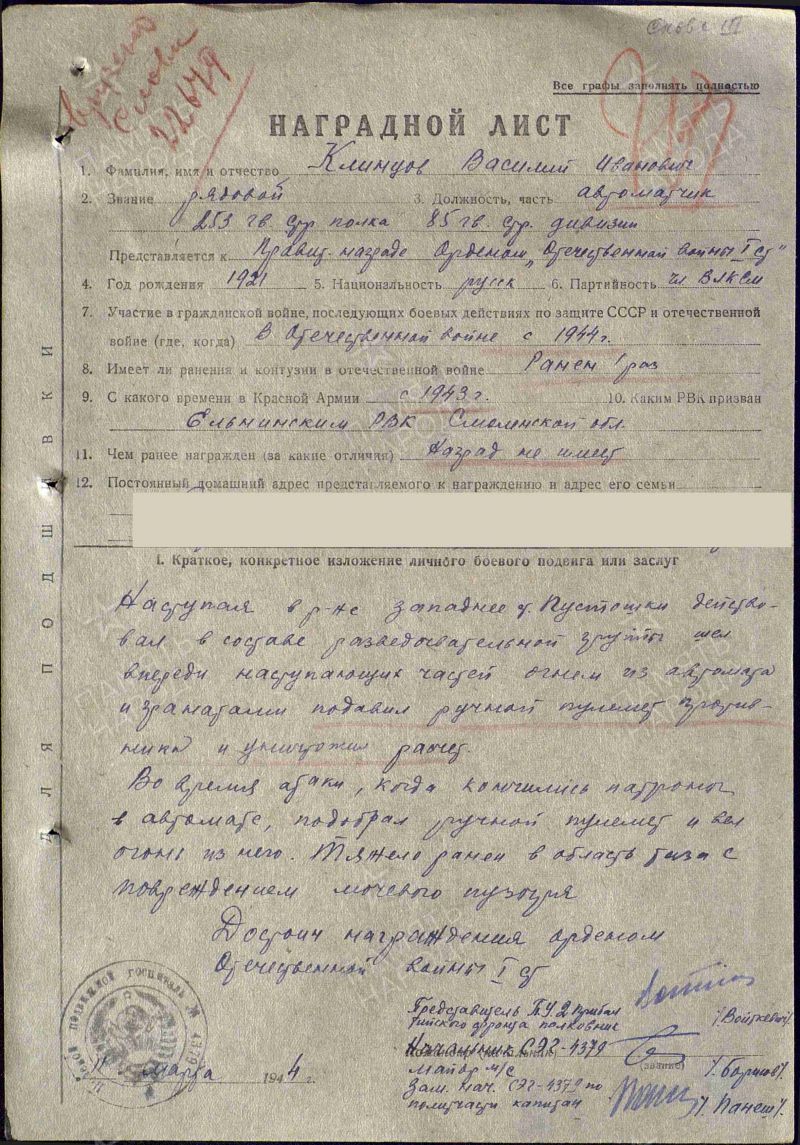 Слава III
вручена
Слава
22679
Все графы заполнять полностью
НАГРАДНОЙ ЛИСТ
1. Фамилия, имя и отчество Клинцов Василий Иванович
2. Звание рядовой 3. Должность, часть автоматчик
253 гв. стр полка 85 гв. стр. дивизии
Представляется к Правит. награде Орденом „Отечественной войны I ст"
4. Год рождения 1921 5. Национальность русск 6. Партийность чл ВЛКСМ
7. Участие в гражданской войне, последующих боевых действиях по защите СССР и отечественной
войне (где, когда) В Отечественной войне с 1944 г.
8. Имеет ли ранения и контузии в отечественной войне Ранен 1 раз
9. С какого времени в Красной Армии с 1943 г. 10. Каким РВК призван
Ельнинским РВК Смоленской обл.
11. Чем ранее награжден (за какие отличия) Наград не имеет
12. Постоянный домашний адрес предстапяемого к награждению и адрес его семьи
I. Краткое, конкретное изложение личного боевого подвига или заслуг
Наступая в р-не западнее г. Пустошки действо-
вал в составе разведовательной группы шел
впереди наступающих частей огнем из автомата
и гранатами подавил ручной пулемет против-
ника и уничтожил расчет.
Во время атаки, когда кончились патроны
в автомате, подобрал ручной пулемет и вел
огонь из него. Тяжело ранен в область таза с
повреждением мочевого пузыря
Достоин награждения орденом
Отечественной войны I ст
Представитель П.У. 2 Прибал
тийского фронта полковник /Войткевич/
Начальник СЭГ-4379
майор м/с (звание) /Борисов/.
Зам. нач. СЭГ-4379 по
политчасти капитан /Панеш/
11 марта 1944 г.
ДЛЯ ПОДШИВКИ